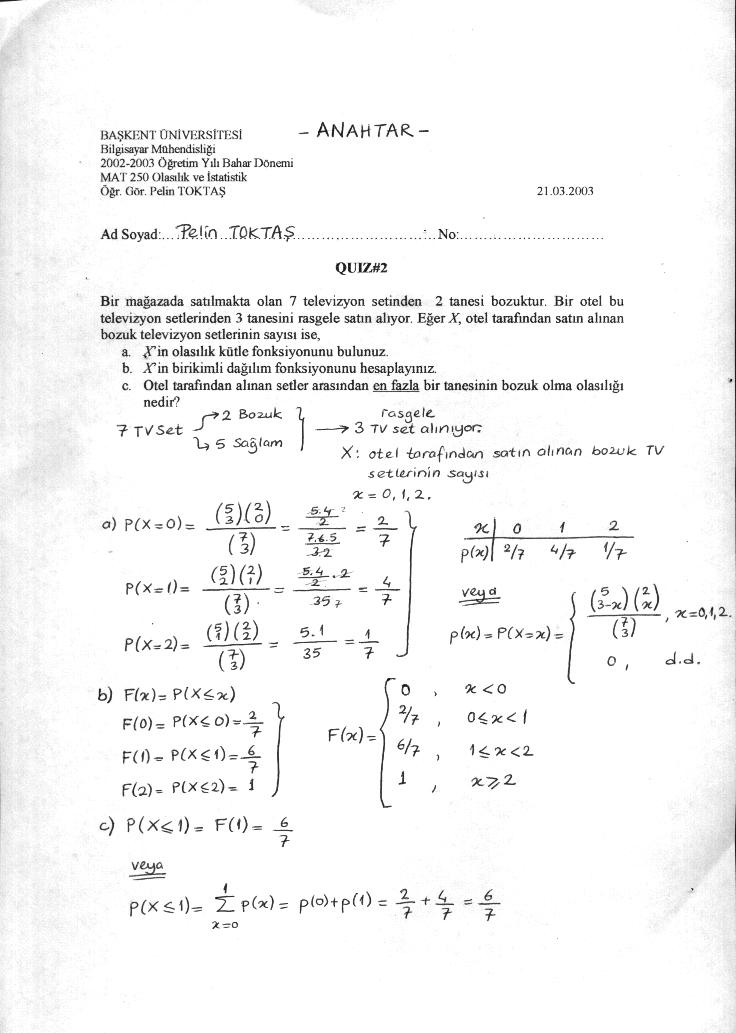 - ANAHTAR -
BAŞKENT ÜNİVERSİTESİ
Bilgisayar Mühendisliği
2002-2003 Öğretim Yılı Bahar Dönemi
MAT 250 Olasılık ve İstatistik
Öğr. Gör. Pelin TOKTAŞ 21.03.2003
Ad Soyad:....Pelin...TOKTAŞ.............................No:..............................
QUIZ#2
Bir mağazada satılmakta olan 7 televizyon setinden 2 tanesi bozuktur. Bir otel bu
televizyon setlerinden 3 tanesini rasgele satın alıyor. Eğer X, otel tarafından satın alınan
bozuk televizyon setlerinin sayısı ise,
a. X'in olasılık kütle fonksiyonunu bulunuz.
b. X'in birikimli dağılım fonksiyonunu hesaplayınız.
c. Otel tarafından alınan setler arasından en fazla bir tanesinin bozuk olma olasılığı
nedir?
7 TV Set → 2 Bozuk
↳ 5 Sağlam
rasgele
→ 3 TV set alınıyor.
X: otel tarafından satın alınan bozuk TV
setlerinin sayısı
x = 0, 1, 2.
a) P(X=0) = (5 3)(2 0) / (7 3) = (5.4/2) / (7.6.5/3.2) = 2/7
P(X=1) = (5 2)(2 1) / (7 3) = (5.4/2 . 2) / 35 = 4/7
P(X=2) = (5 1)(2 2) / (7 3) = 5.1/35 = 1/7
x | 0 1 2
p(x) | 2/7 4/7 1/7
veya
p(x) = P(X=x) = { (5 3-x)(2 x) / (7 3) , x=0,1,2.
0 , d.d.
b) F(x) = P(X≤x)
F(0) = P(X≤0) = 2/7
F(1) = P(X≤1) = 6/7
F(2) = P(X≤2) = 1
F(x) = { 0 , x<0
2/7 , 0≤x<1
6/7 , 1≤x<2
1 , x≥2
c) P(X≤1) = F(1) = 6/7
veya
P(X≤1) = Σ x=0 1 p(x) = p(0)+p(1) = 2/7 + 4/7 = 6/7